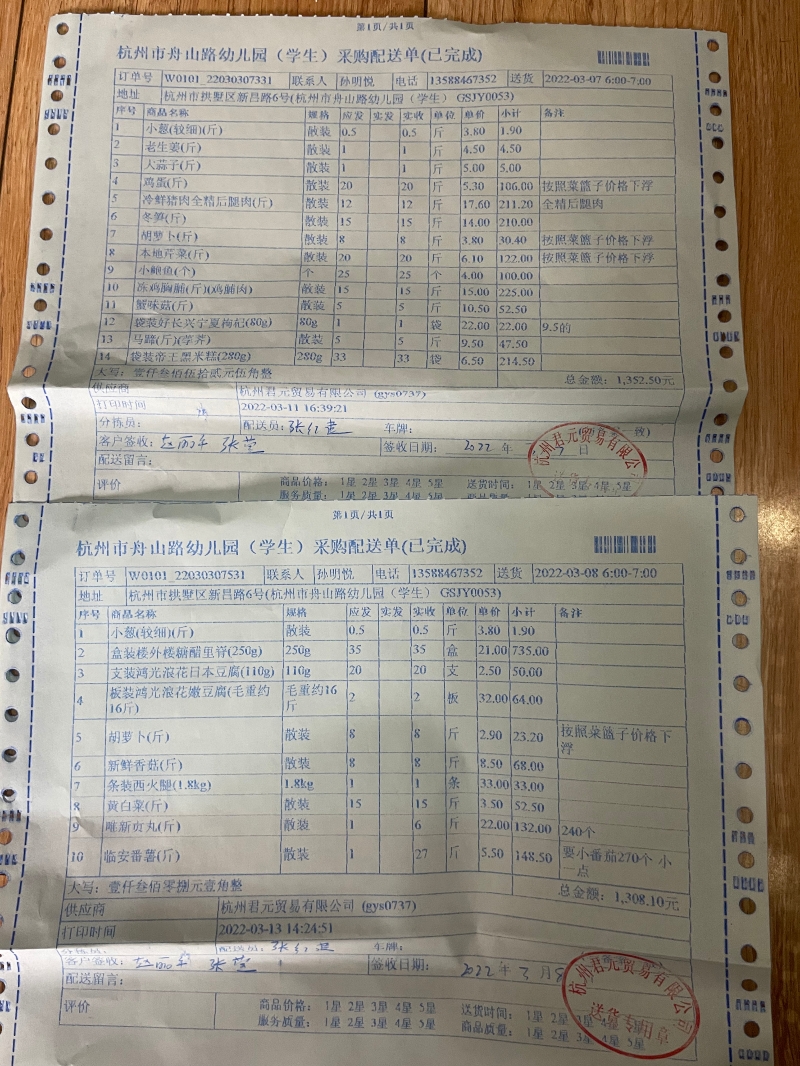 第1页/共1页
杭州市舟山路幼儿园（学生）采购配送单(已完成)
订单号 W0101_22030307331 联系人 孙明悦 电话 13588467352 送货 2022-03-07 6:00-7:00
地址 杭州市拱墅区新昌路6号(杭州市舟山路幼儿园（学生） GSJY0053)
序号 商品名称 规格 应发 实发 实收 单位 单价 小计 备注
1 小葱(较细)(斤) 散装 0.5 0.5 斤 3.80 1.90
2 老生姜(斤) 散装 1 1 斤 4.50 4.50
3 大蒜子(斤) 散装 1 1 斤 5.00 5.00
4 鸡蛋(斤) 散装 20 20 斤 5.30 106.00 按照菜篮子价格下浮
5 冷鲜猪肉全精后腿肉(斤) 散装 12 12 斤 17.60 211.20 全精后腿肉
6 冬笋(斤) 散装 15 15 斤 14.00 210.00
7 胡萝卜(斤) 散装 8 8 斤 3.80 30.40 按照菜篮子价格下浮
8 本地芹菜(斤) 散装 20 20 斤 6.10 122.00 按照菜篮子价格下浮
9 小鲍鱼(个) 个 25 25 个 4.00 100.00
10 冻鸡胸脯(斤)(鸡脯肉) 散装 15 15 斤 15.00 225.00
11 蟹味菇(斤) 散装 5 5 斤 10.50 52.50
12 袋装好长兴宁夏枸杞(80g) 80g 1 1 袋 22.00 22.00 9.5的
13 马蹄(斤)(荸荠) 散装 5 5 斤 9.50 47.50
14 袋装帝王黑米糕(280g) 280g 33 33 袋 6.50 214.50
大写：壹仟叁佰伍拾贰元伍角整 总金额：1,352.50元
供应商 杭州君元贸易有限公司 (gys0737)
打印时间 2022-03-11 16:39:21
分拣员： 配送员：张红 车牌：
客户签收：赵丽 张莹 签收日期：2022 年 日
杭州君元贸易有限公
配送留言：
评价 商品价格： 1星 2星 3星 4星 5星 送货时间： 1星 2星 3星 4星 5星
服务质量： 1星 2星 3星 4星 5星
第1页/共1页
杭州市舟山路幼儿园（学生）采购配送单(已完成)
订单号 W0101_22030307531 联系人 孙明悦 电话 13588467352 送货 2022-03-08 6:00-7:00
地址 杭州市拱墅区新昌路6号(杭州市舟山路幼儿园（学生） GSJY0053)
序号 商品名称 规格 应发 实发 实收 单位 单价 小计 备注
1 小葱(较细)(斤) 散装 0.5 0.5 斤 3.80 1.90
2 盒装楼外楼糖醋里脊(250g) 250g 35 35 盒 21.00 735.00
3 支装鸿光浪花日本豆腐(110g) 110g 20 20 支 2.50 50.00
4 板装鸿光浪花嫩豆腐(毛重约 毛重约16 2 2 板 32.00 64.00
16斤) 斤
5 胡萝卜(斤) 散装 8 8 斤 2.90 23.20 按照菜篮子价格下
浮
6 新鲜香菇(斤) 散装 8 8 斤 8.50 68.00
7 条装西火腿(1.8kg) 1.8kg 1 1 条 33.00 33.00
8 黄白菜(斤) 散装 15 15 斤 3.50 52.50
9 唯新贡丸(斤) 散装 1 6 斤 22.00 132.00 240个
10 临安番薯(斤) 散装 1 27 斤 5.50 148.50 要小番茄270个 小
一点
大写：壹仟叁佰零捌元壹角整 总金额：1,308.10元
供应商 杭州君元贸易有限公司 (gys0737)
打印时间 2022-03-13 14:24:51
分拣员： 配送员：张红 车牌：
客户签收：赵丽 张莹 签收日期：2022 年 3 月 8
杭州君元贸易有限公司
送货专用章
配送留言：
评价 商品价格： 1星 2星 3星 4星 5星 送货时间： 1星 2星 3星 4星 5星
服务质量： 1星 2星 3星 4星 5星 商品质量： 1星 2星 3星 4星 5星